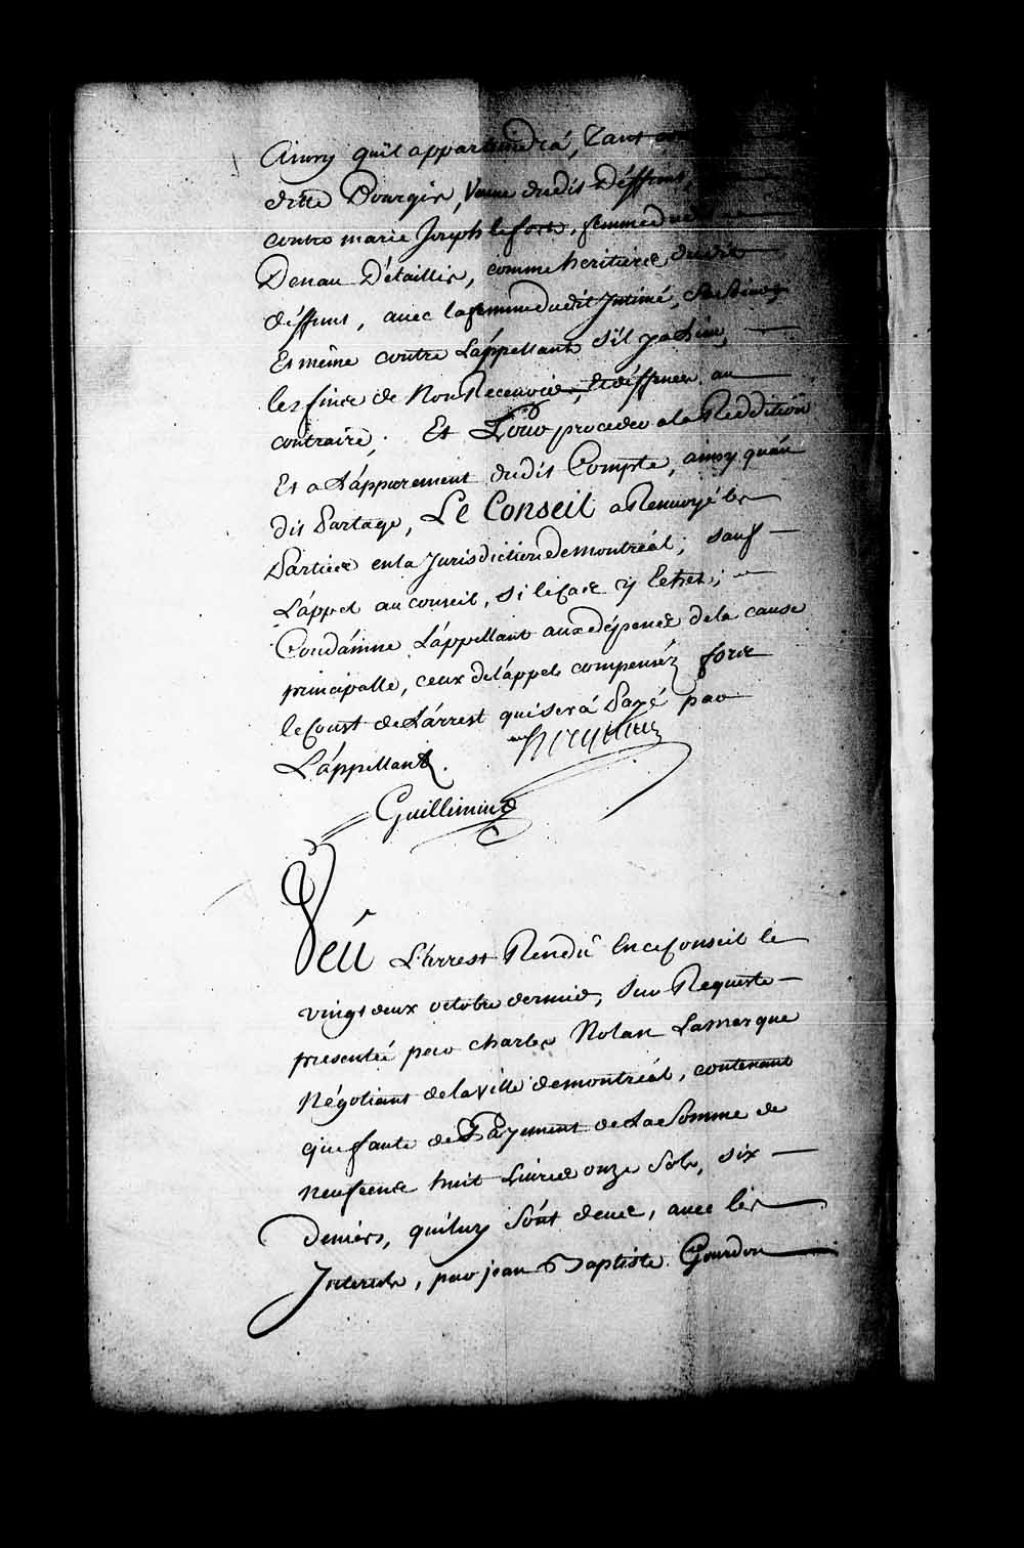 Ainsy qu'il appartiendra, Tant
ditte Bourgis, Veuve dudit Deffunt,
contre marie Joseph lefort, femme
Denau Détaillis, comme heritiere dudit
déffunt, avec la femme dudit Intimé, Ses Soeurs
Et même contre L'appellant s'il y a Lieu,
les fins de Non Recevoir, Et déffenses au
contraire; Et Pour proceder a la Reddition
Et a L'appurement dudit Compte, ainsy qu'au
dit Partage, Le Conseil a Renvoyé les
Parties en la Jurisdiction de montréal; sauf
L'appel au conseil, si le cas y Echet;
Condamne L'appellant aux dépens de la cause
principalle, ceux de l'appel compensez fors
le Coust de L'arrest qui sera Payé par
L'appellant.
Hocquart
Guillimin
Veu L'arrest Rendu En ce Conseil le
vingt deux octobre dernier, Sur Requeste
presentée par charles Nolan Lamarque
Négotiant de la ville de montréal, contenant
que faute de Payement de La Somme de
neuf cent huit Livres onze Sols, six
Deniers, qui luy Sont deue, avec les
Interests, par jean Baptiste Gourdon